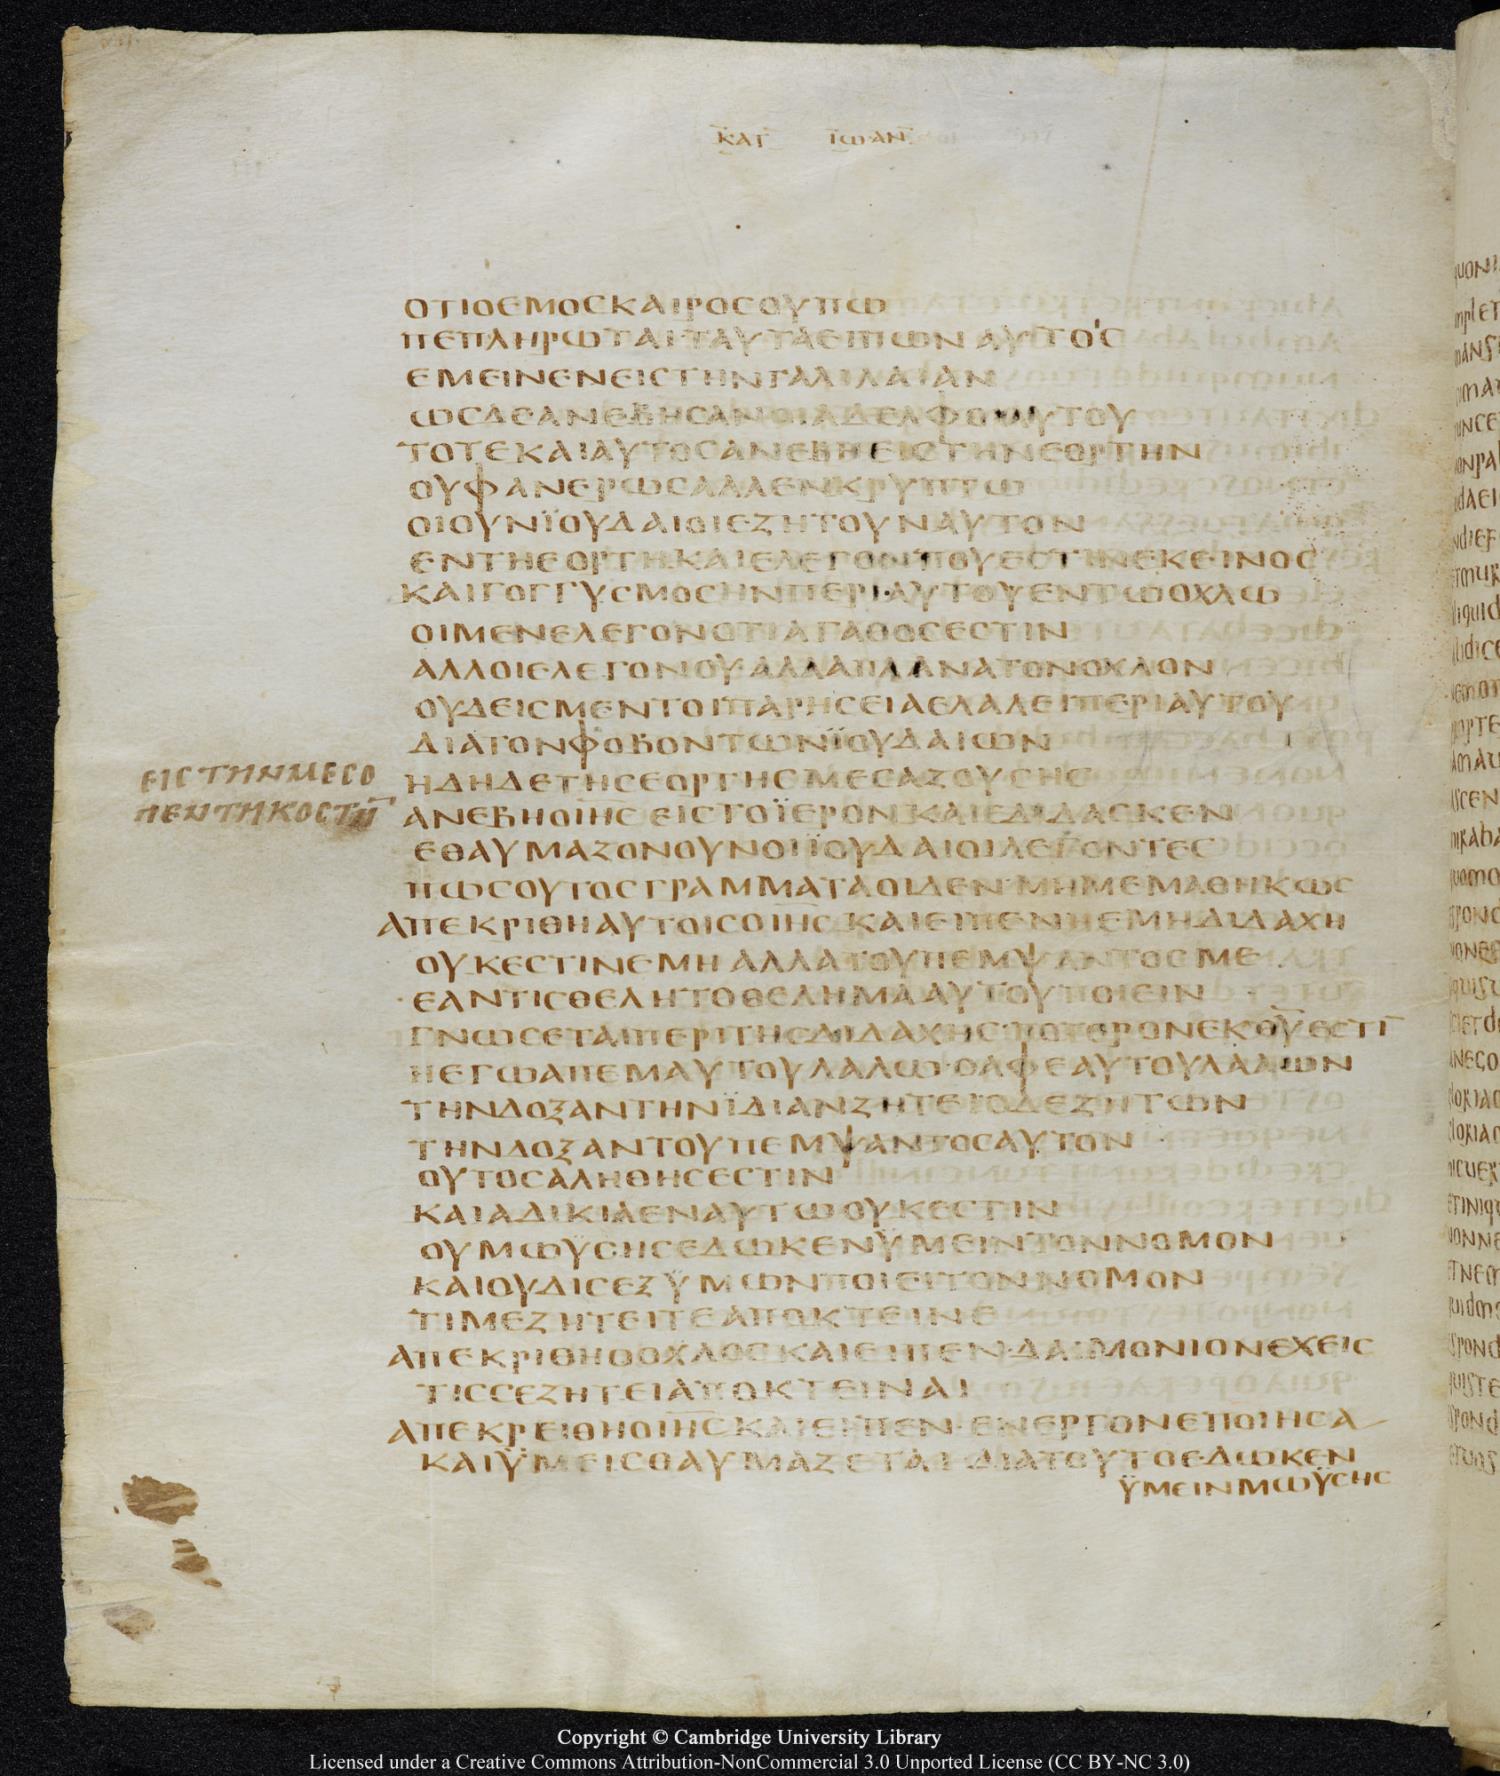 ΚΑΤ ΙΩΑΝ
ΟΤΙΟΕΜΟΣΚΑΙΡΟΣΟΥΠΩ
ΠΕΠΛΗΡΩΤΑΙ·ΤΑΥΤΑΕΙΠΩΝ ΑΥΤΟΣ
ΕΜΕΙΝΕΝΕΙΣΤΗΝΓΑΛΙΛΑΙΑΝ
ΩΣΔΕΑΝΕΒΗΣΑΝΟΙΑΔΕΛΦΟΙΑΥΤΟΥ
ΤΟΤΕΚΑΙΑΥΤΟΣΑΝΕΒΗΕΙΣΤΗΝΕΟΡΤΗΝ
ΟΥΦΑΝΕΡΩΣΑΛΛΑΕΝΚΡΥΠΤΩ
ΟΙΟΥΝΪΟΥΔΑΙΟΙΕΖΗΤΟΥΝΑΥΤΟΝ
ΕΝΤΗΕΟΡΤΗ·ΚΑΙΕΛΕΓΟΝΠΟΥΕΣΤΙΝΕΚΕΙΝΟΣ
ΚΑΙΓΟΓΓΥΣΜΟΣΗΝΠΕΡΙ·ΑΥΤΟΥΕΝΤΩΟΧΛΩ
ΟΙΜΕΝΕΛΕΓΟΝΟΤΙΑΓΑΘΟΣΕΣΤΙΝ
ΑΛΛΟΙΕΛΕΓΟΝΟΥ·ΑΛΛΑΠΛΑΝΑΤΟΝΟΧΛΟΝ
ΟΥΔΕΙΣΜΕΝΤΟΙΠΑΡΗΣΕΙΑΕΛΑΛΕΙΠΕΡΙΑΥΤΟΥ
ΔΙΑΤΟΝΦΟΒΟΝΤΩΝΪΟΥΔΑΙΩΝ
ΕΙΣΤΗΝΜΕΣΟ
ΠΕΝΤΗΚΟΣΤΗ̅
ΗΔΗΔΕΤΗΣΕΟΡΤΗΣΜΕΣΑΖΟΥΣΗΣ
ΑΝΕΒΗΟΙΗΣ ΕΙΣΤΟΪΕΡΟΝ ΚΑΙΕΔΙΔΑΣΚΕΝ
ΕΘΑΥΜΑΖΟΝΟΥΝΟΙΪΟΥΔΑΙΟΙΛΕΓΟΝΤΕΣ
ΠΩΣΟΥΤΟΣΓΡΑΜΜΑΤΑΟΙΔΕΝ·ΜΗΜΕΜΑΘΗΚΩΣ
ΑΠΕΚΡΙΘΗΑΥΤΟΙΣΟΙΗΣ ΚΑΙΕΙΠΕΝΗΕΜΗΔΙΔΑΧΗ
ΟΥΚΕΣΤΙΝΕΜΗ ΑΛΛΑΤΟΥΠΕΜΨΑΝΤΟΣΜΕ
ΕΑΝΤΙΣΘΕΛΗΤΟΘΕΛΗΜΑΑΥΤΟΥΠΟΙΕΙΝ
ΓΝΩΣΕΤΑΙΠΕΡΙΤΗΣΔΙΔΑΧΗΣ·ΠΟΤΕΡΟΝΕΚΘ̅Υ̅ΕΣΤΙ̅
ΗΕΓΩΑΠΕΜΑΥΤΟΥΛΑΛΩ·ΟΑΦΕΑΥΤΟΥΛΑΛΩΝ
ΤΗΝΔΟΞΑΝΤΗΝΪΔΙΑΝΖΗΤΕΙ·ΟΔΕΖΗΤΩΝ
ΤΗΝΔΟΞΑΝΤΟΥΠΕΜΨΑΝΤΟΣΑΥΤΟΝ
ΟΥΤΟΣΑΛΗΘΗΣΕΣΤΙΝ
ΚΑΙΑΔΙΚΙΑΕΝΑΥΤΩΟΥΚΕΣΤΙΝ
ΟΥΜΩΫΣΗΣΕΔΩΚΕΝΫΜΕΙΝΤΟΝΝΟΜΟΝ
ΚΑΙΟΥΔΙΣΕΞΫΜΩΝΠΟΙΕΙΤΟΝΝΟΜΟΝ
ΤΙΜΕΖΗΤΕΙΤΕΑΠΟΚΤΕΙΝΕ
ΑΠΕΚΡΙΘΗΟΟΧΛΟΣΚΑΙΕΙΠΕΝ·ΔΑΙΜΟΝΙΟΝΕΧΕΙΣ
ΤΙΣΣΕΖΗΤΕΙΑΠΟΚΤΕΙΝΑΙ
ΑΠΕΚΡΕΙΘΗΟΙΗΣΚΑΙΕΙΠΕΝ·ΕΝΕΡΓΟΝΕΠΟΙΗΣΑ
ΚΑΙΫΜΕΙΣΘΑΥΜΑΖΕΤΑΙ·ΔΙΑΤΟΥΤΟΕΔΩΚΕΝ
ΫΜΕΙΝΜΩΫΣΗΣ
Copyright © Cambridge University Library
Licensed under a Creative Commons Attribution-NonCommercial 3.0 Unported License (CC BY-NC 3.0)